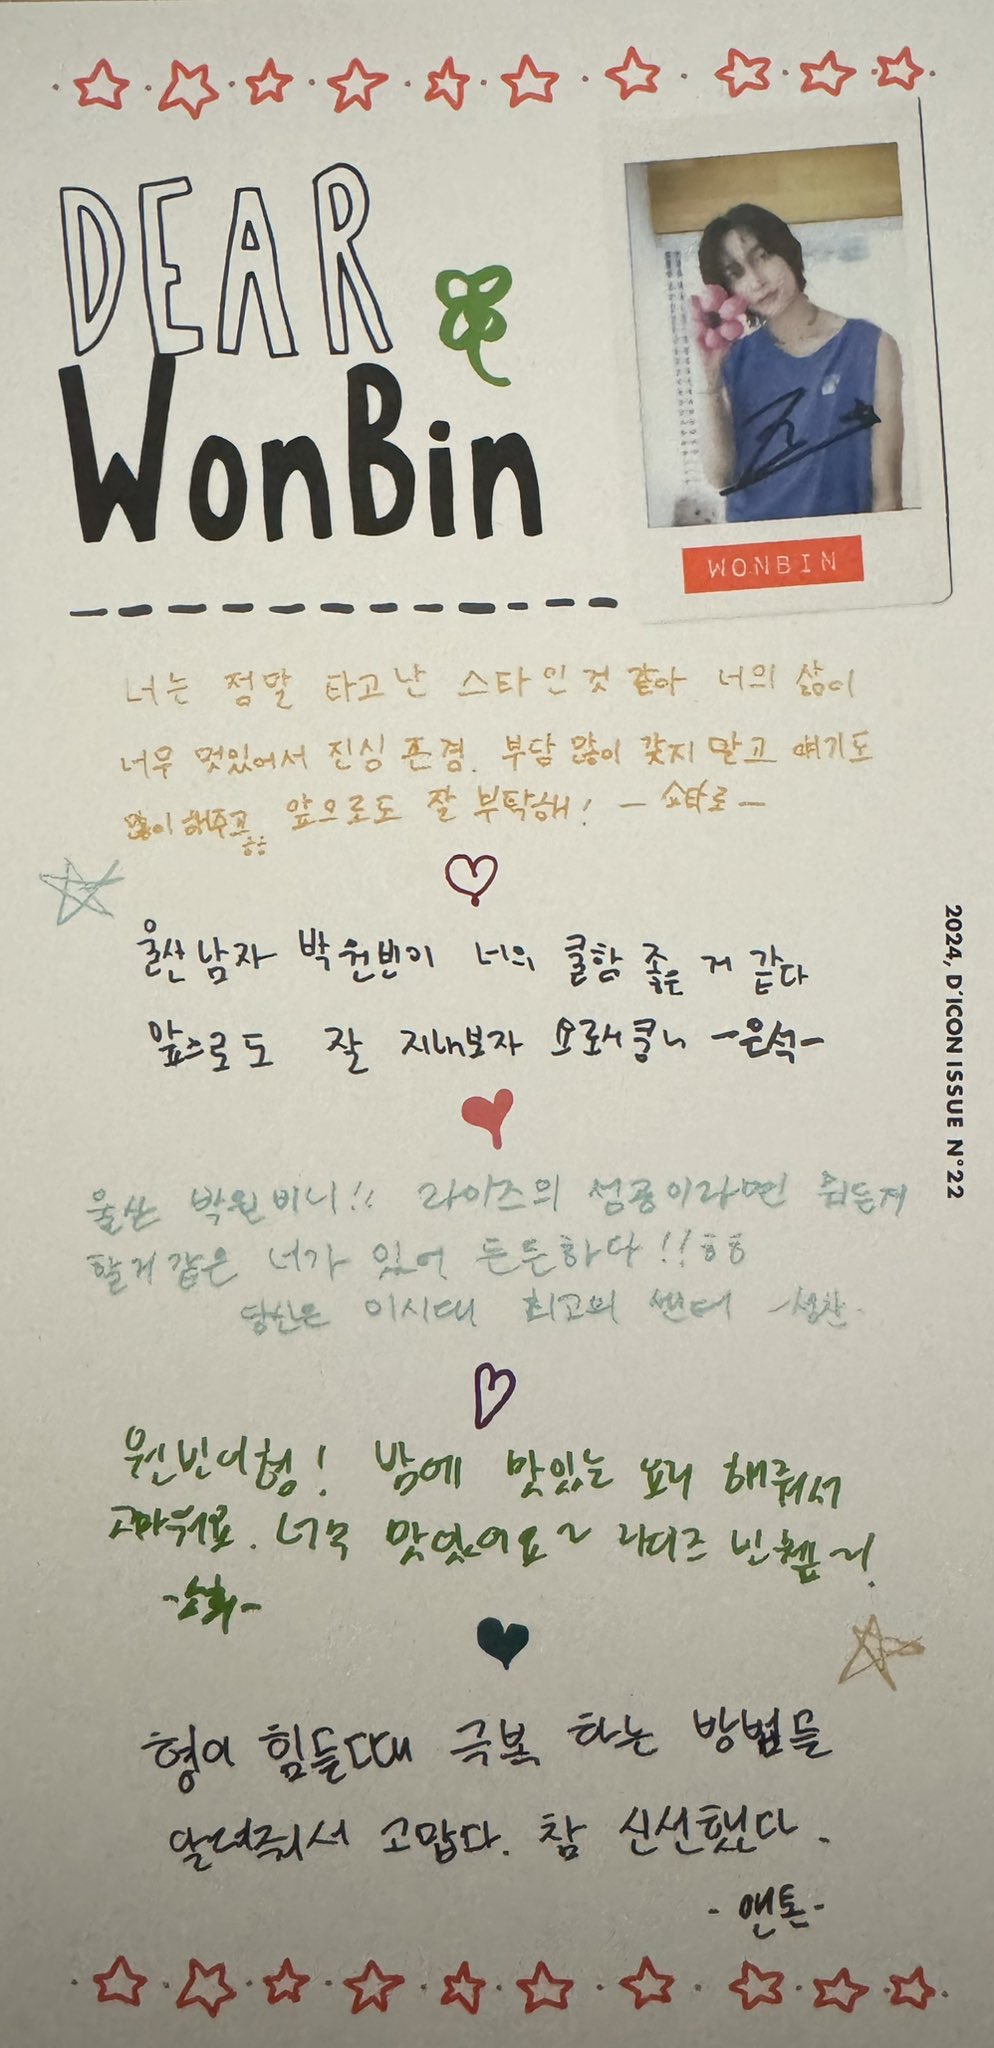 DEAR
WonBin
WONBIN
너는 정말 타고난 스타인것 같아 너의 삶이
너무 멋있어서 진심 존경. 부담 많이 갖지 말고 얘기도
많이 해주고 앞으로도 잘 부탁해! - 쇼타로 -
울산남자 박원빈이 너의 쿨함 좋은 거 같다
앞으로도 잘 지내보자 -은석-
울산 박원비니!! 라이즈의 성공이라면 뭐든지
할거같은 너가 있어 든든하다!! ㅎㅎ
당신은 이시대 최고의 센터 -성찬-
원빈이형! 밤에 맛있는 요리 해줘서
고마워요. 너무 맛있었어요~ 라이즈
-소희-
형이 힘들다때 극복 하는 방법들
알려줘서 고맙다. 참 신선했다.
- 앤톤-
2024, D'ICON ISSUE N°22